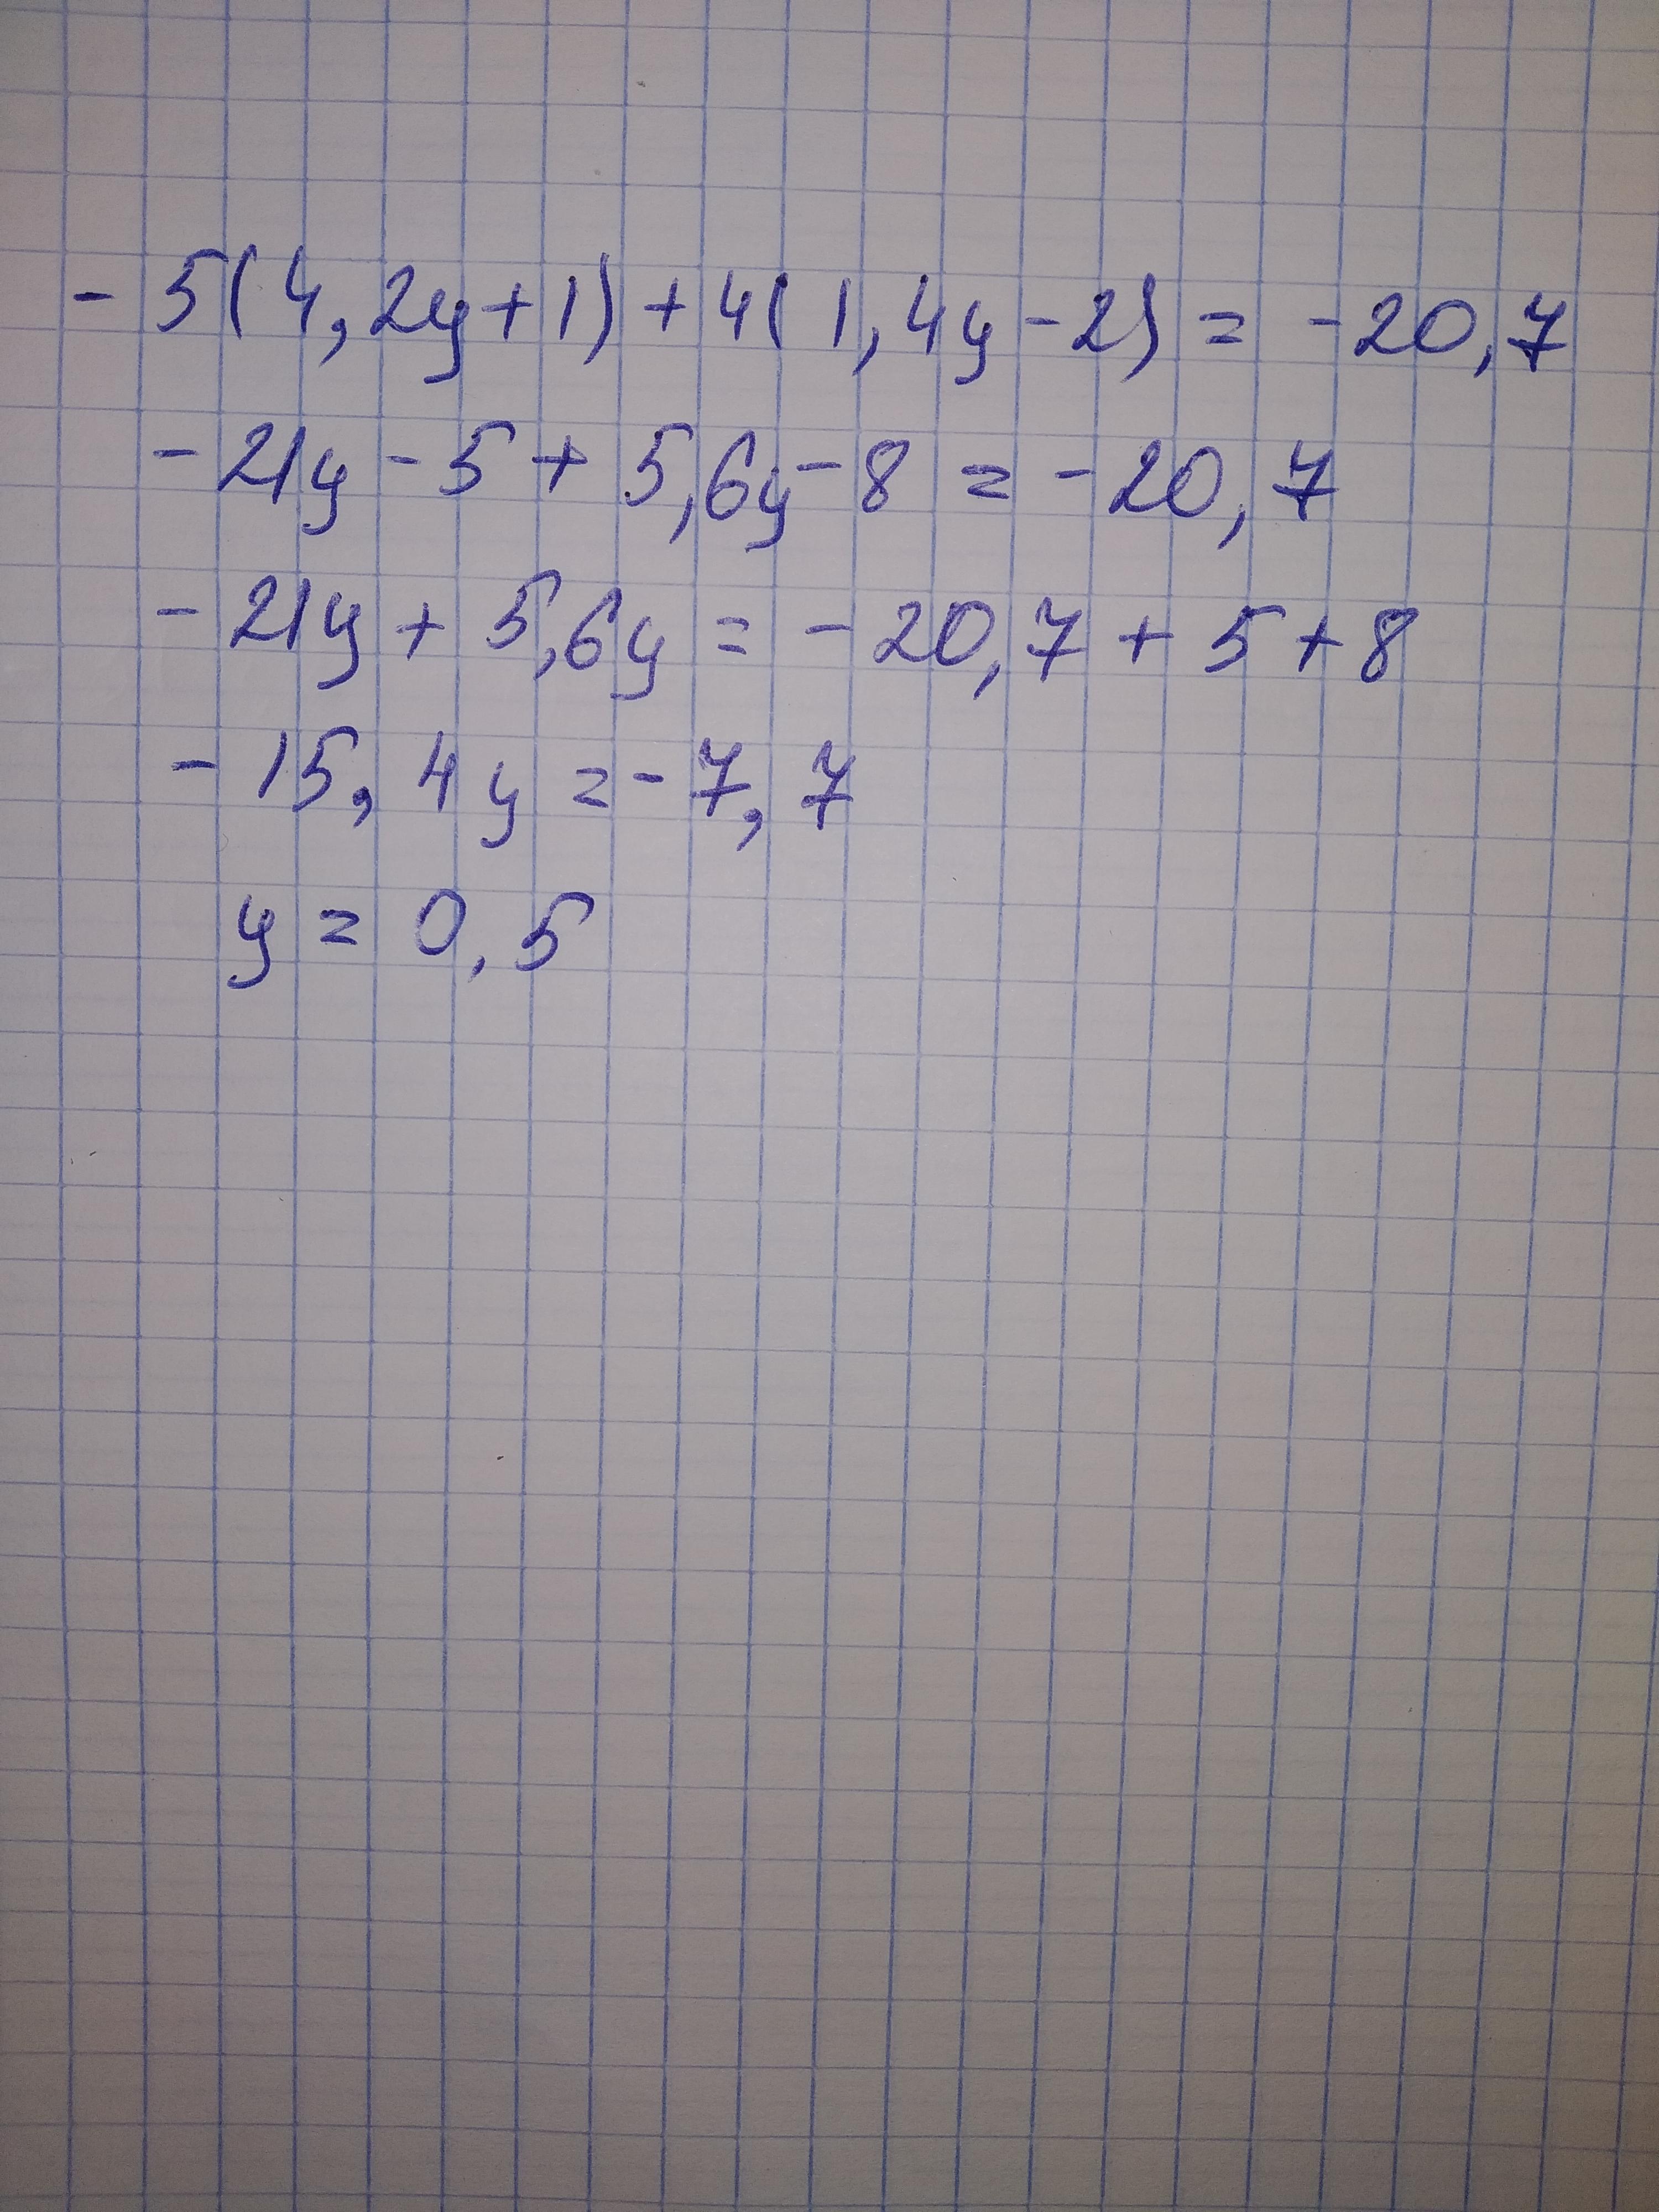 - 5(4,2y+1) + 4(1,4y-2) = -20,7
- 21y - 5 + 5,6y - 8 = -20,7
- 21y + 5,6y = -20,7 + 5 + 8
- 15,4y = -7,7
y = 0,5